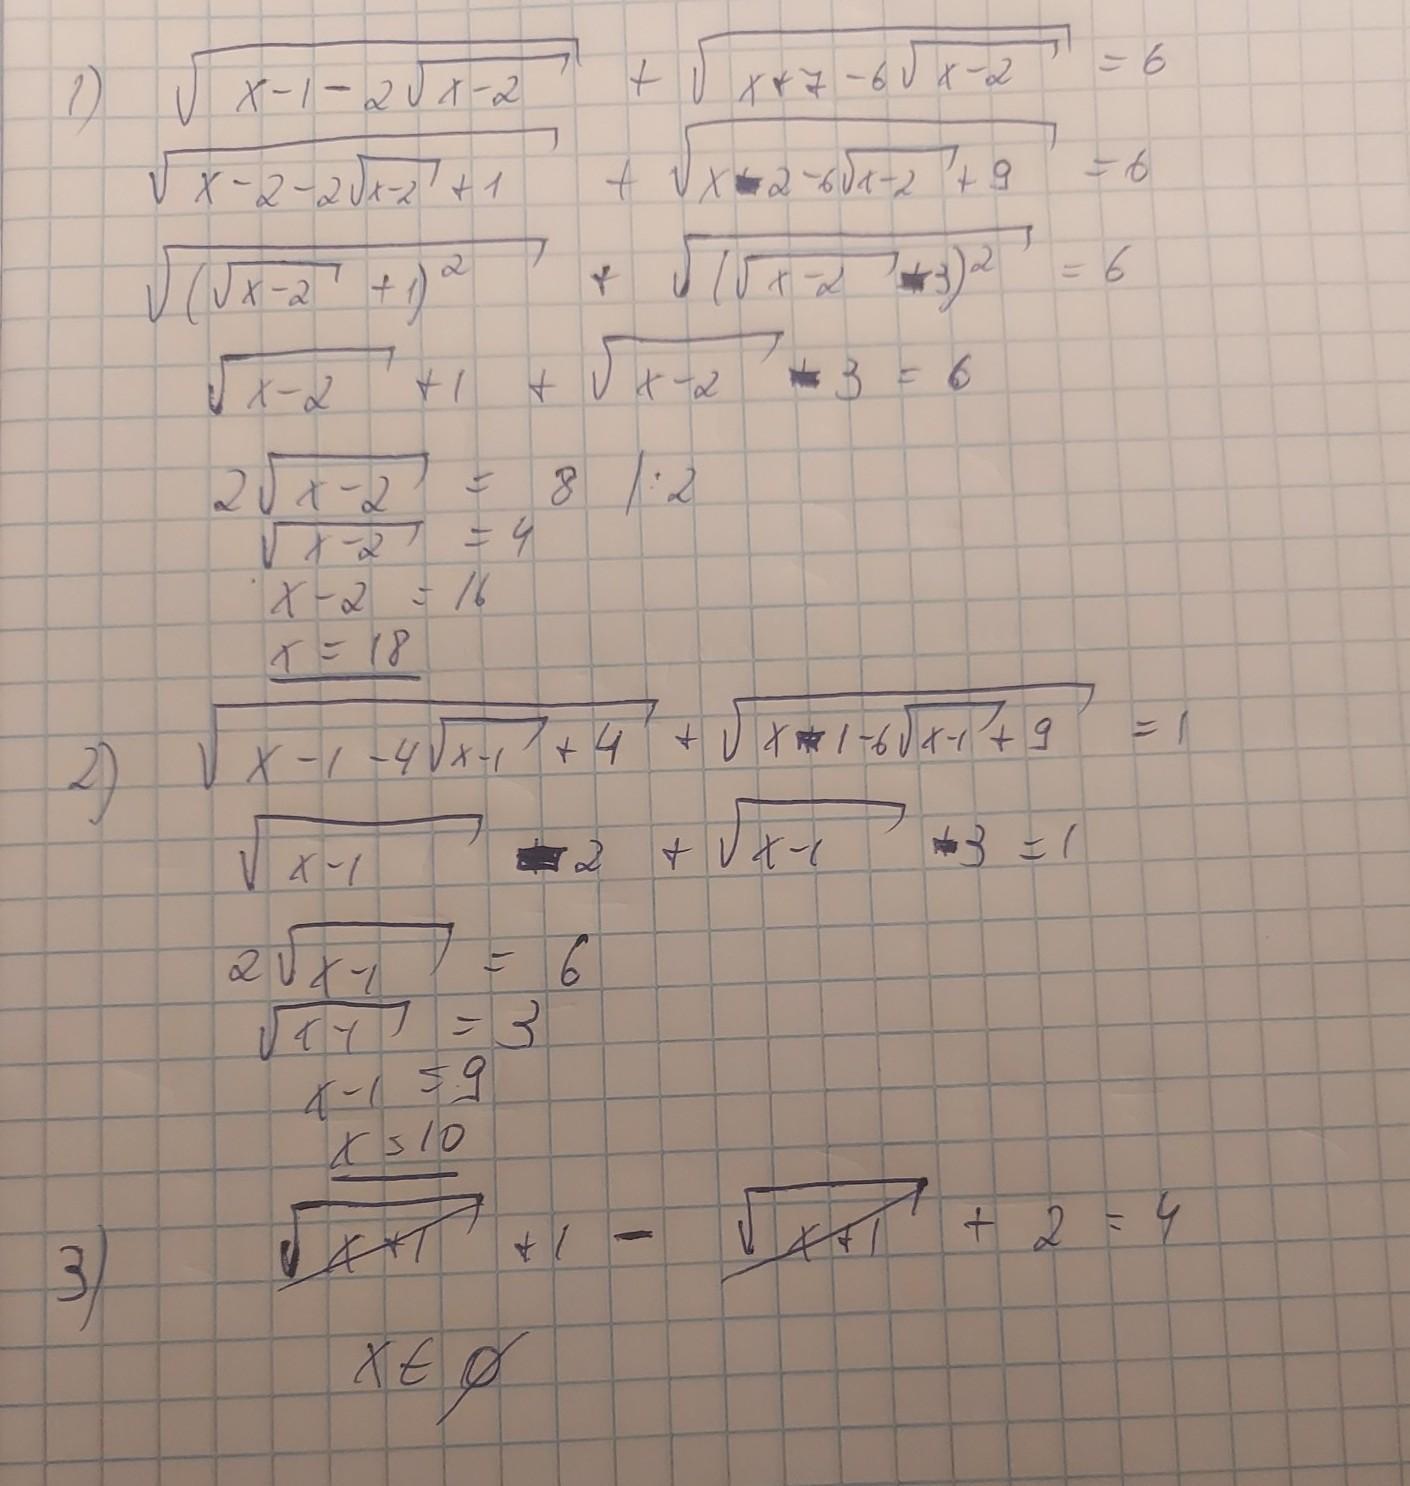 1) √(x-1-2√(x-2)) + √(x+7-6√(x-2)) = 6
√(x-2-2√(x-2)+1) + √(x-2-6√(x-2)+9) = 6
√((√(x-2)+1)²) + √((√(x-2)-3)²) = 6
√(x-2) +1 + √(x-2) - 3 = 6
2√(x-2) = 8 /:2
√(x-2) = 4
x-2 = 16
x = 18
2) √(x-1-4√(x-1)+4) + √(x-1-6√(x-1)+9) = 1
√(x-1) - 2 + √(x-1) - 3 = 1
2√(x-1) = 6
√(x-1) = 3
x-1 = 9
x = 10
3) √(x+1) +1 - √(x+1) + 2 = 4
x ∈ ∅